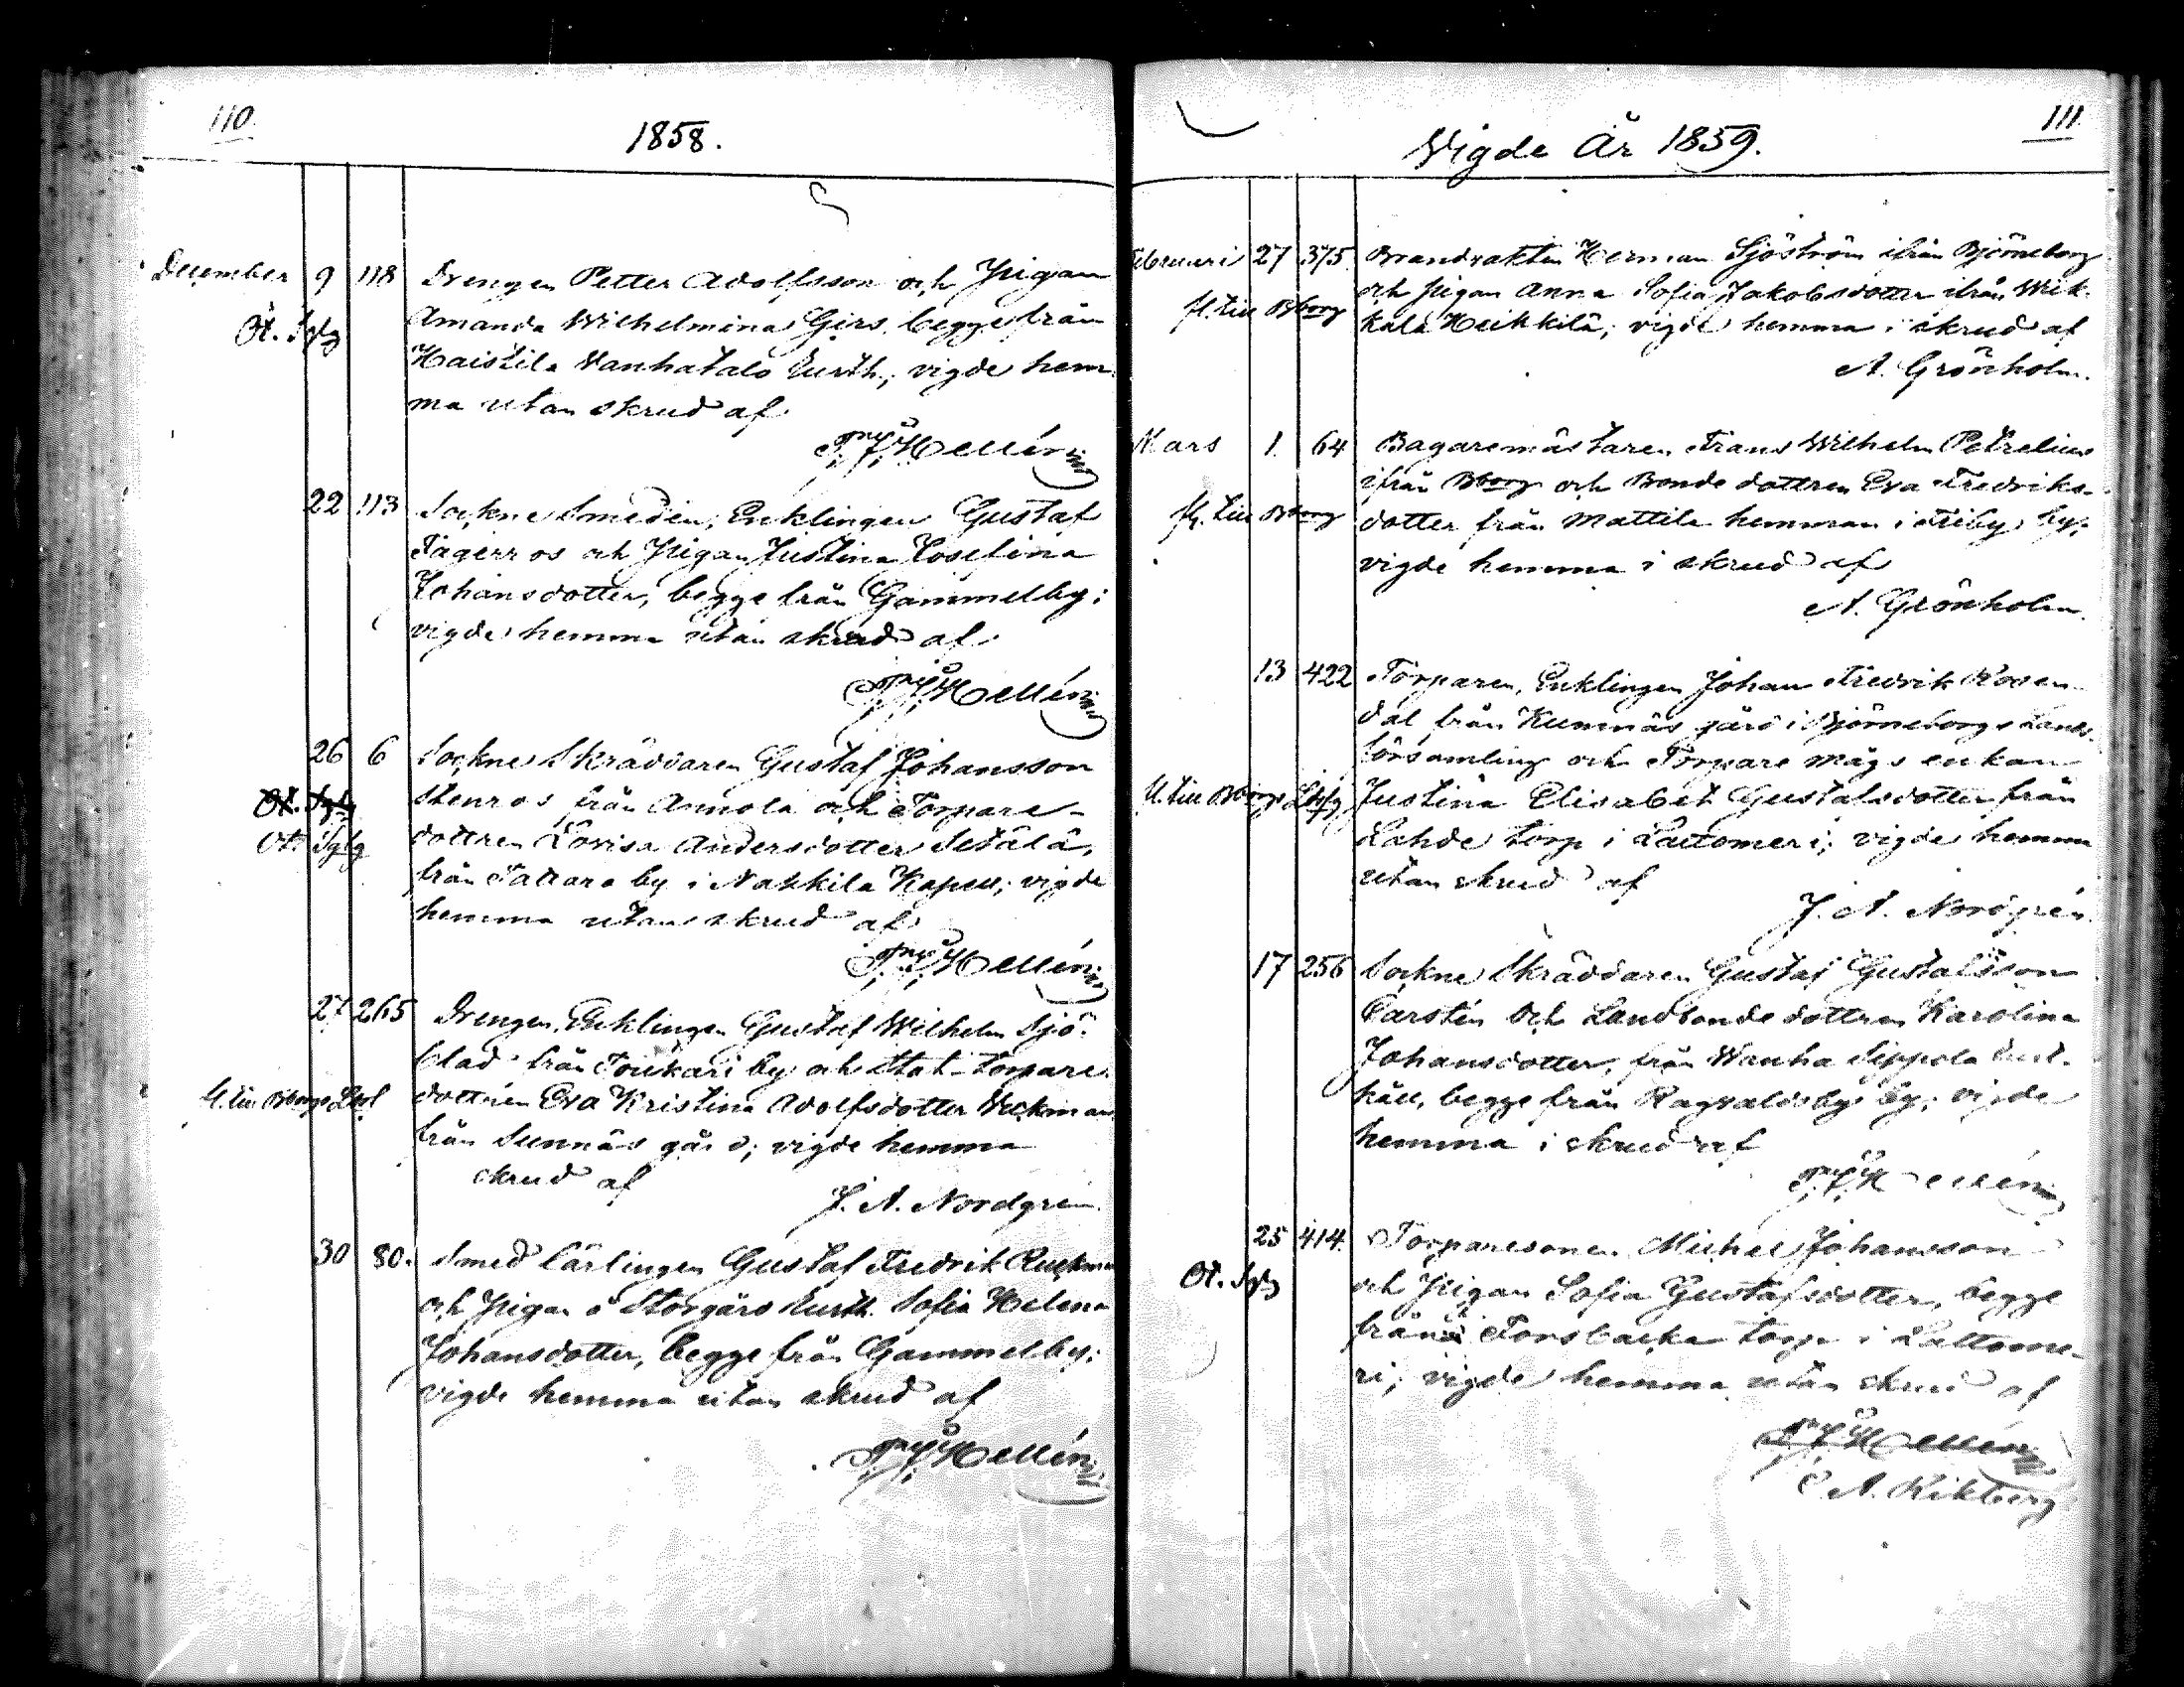 110.
1858.
December 9 118 Drengen Petter Adolfsson och Pigan
Öt. Sglg Amanda Wilhelmina Girs, begge från
Haistila Vanhatalo Rusth., vigde hem-
ma utan skrud af
Hellén
22 113 Sockne Smeden, Enklingen Gustaf
Tågerros och Pigan Justina Josefina
Johansdotter, begge från Gammelby;
vigde hemma utan skrud af
Hellén
26 6 Sockne Skräddaren Gustaf Johansson
Öt. Sglg Stenros från Annola och Torpare-
Öt. Sglg dottren Lovisa Andersdotter Setälä,
från Tattara by i Nakkila Kapell; vigde
hemma utan skrud af
Hellén
27 265 Drengen, Enklingen Gustaf Wilhelm Sjö-
blad från Toukari by och Stat-torpare
fl. till Bborgs dottren Eva Kristina Adolfsdotter
från Sunnäs gård; vigde hemma
skrud af
J. A. Nordgrén
30 80. Smed lärlingen Gustaf Fredrik
och Pigan å Storgård Rusth. Sofia Helena
Johansdotter, begge från Gammelby;
vigde hemma utan skrud af
Hellén
111.
Vigde År 1859.
Februari 27 375 Brandvakten Herman Sjöström ifrån Björneborg
och Pigan Anna Sofia Jakobsdotter ifrån Wik-
fl. till Bborg kala Heikkilä; vigde hemma i skrud af
A. Grönholm.
Mars 1. 64 Bagaremästaren Frans Wilhelm Petrelius
ifrån Bborg och Bonde dottren Eva Fredriks-
fl. till Bborg dotter från Mattila hemman i Friby by;
vigde hemma i skrud af
A. Grönholm.
13 422 Torparen, Enklingen Johan Fredrik Rosen-
dal från Kumnäs gård i Björneborgs Lands-
församling och Torpare mågs enkan
fl. till Bborgs Ldsfg Justina Elisabet Gustafsdotter från
Lahde torp i Lattomeri; vigde hemma
utan skrud af
J. A. Nordgrén.
17 256 Sockne Skräddaren Gustaf Gustafsson
Carstén och Landbonde dottren Karolina
Johansdotter, från Wanha Sippola Rust-
håll, begge från Ragvaldsby by; vigde
hemma i skrud af
Hellén
25 414. Torparesonen Michel Johansson
Öt. Sglg och Pigan Sofia Gustafsdotter, begge
från Forsbacka torp i Lattome-
ri; vigde hemma utan skrud af
Hellén